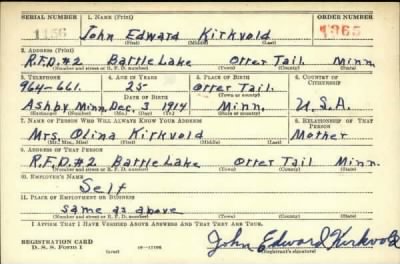 SERIAL NUMBER 1. NAME (Print) ORDER NUMBER
1156 John Edward Kirkvold 1365
(First) (Middle) (Last)
2. ADDRESS (Print)
R.F.D.#2 Battle Lake Otter Tail Minn.
(Number and street or R. F. D. number) (Town) (County) (State)
3. TELEPHONE 4. AGE IN YEARS 5. PLACE OF BIRTH 6. COUNTRY OF CITIZENSHIP
964-661. 25 Otter Tail.
DATE OF BIRTH (Town or county)
Ashby Minn. Dec. 3 1914 Minn. U.S.A.
(Exchange) (Number) (Mo.) (Day) (Yr.) (State or country)
7. NAME OF PERSON WHO WILL ALWAYS KNOW YOUR ADDRESS 8. RELATIONSHIP OF THAT PERSON
Mrs. Olina Kirkvold Mother
(Mr., Mrs., Miss) (First) (Middle) (Last)
9. ADDRESS OF THAT PERSON
R.F.D.#2 Battle Lake Otter Tail Minn.
(Number and street or R. F. D. number) (Town) (County) (State)
10. EMPLOYER'S NAME
Self
11. PLACE OF EMPLOYMENT OR BUSINESS
same as above
(Number and street or R. F. D. number) (Town) (County) (State)
I AFFIRM THAT I HAVE VERIFIED ABOVE ANSWERS AND THAT THEY ARE TRUE.
REGISTRATION CARD
D. S. S. FORM 1 John Edward Kirkvold
(Registrant's signature)